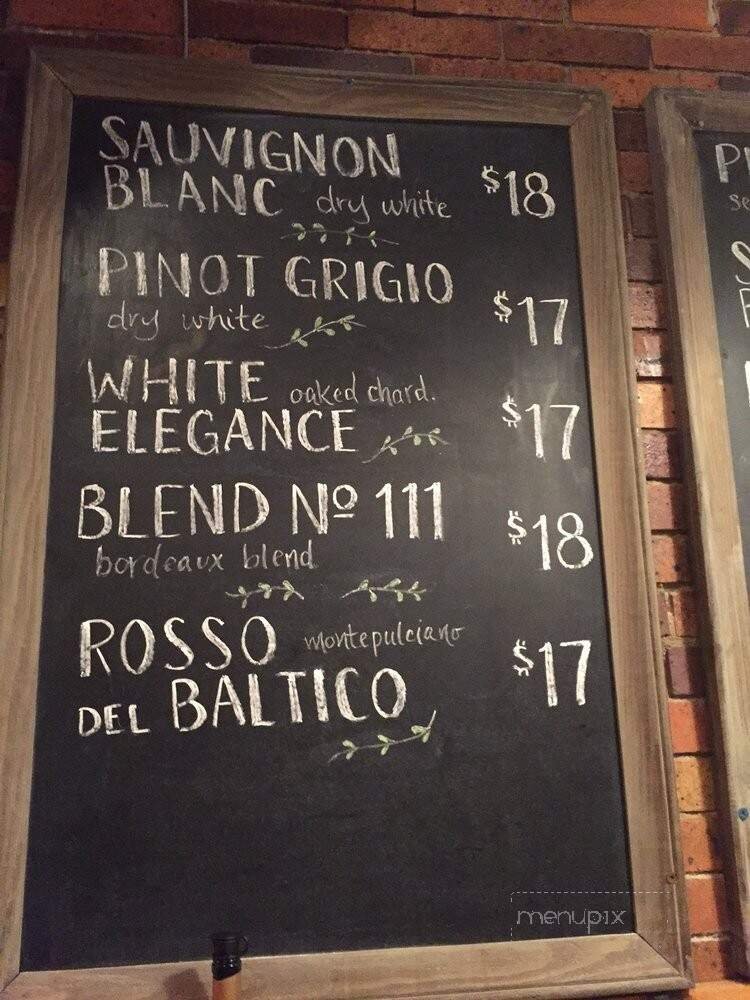 SAUVIGNON
BLANC dry white $18
PINOT GRIGIO
dry white $17
WHITE oaked chard.
ELEGANCE $17
BLEND Nº 111
bordeaux blend $18
ROSSO montepulciano
DEL BALTICO $17
menupix